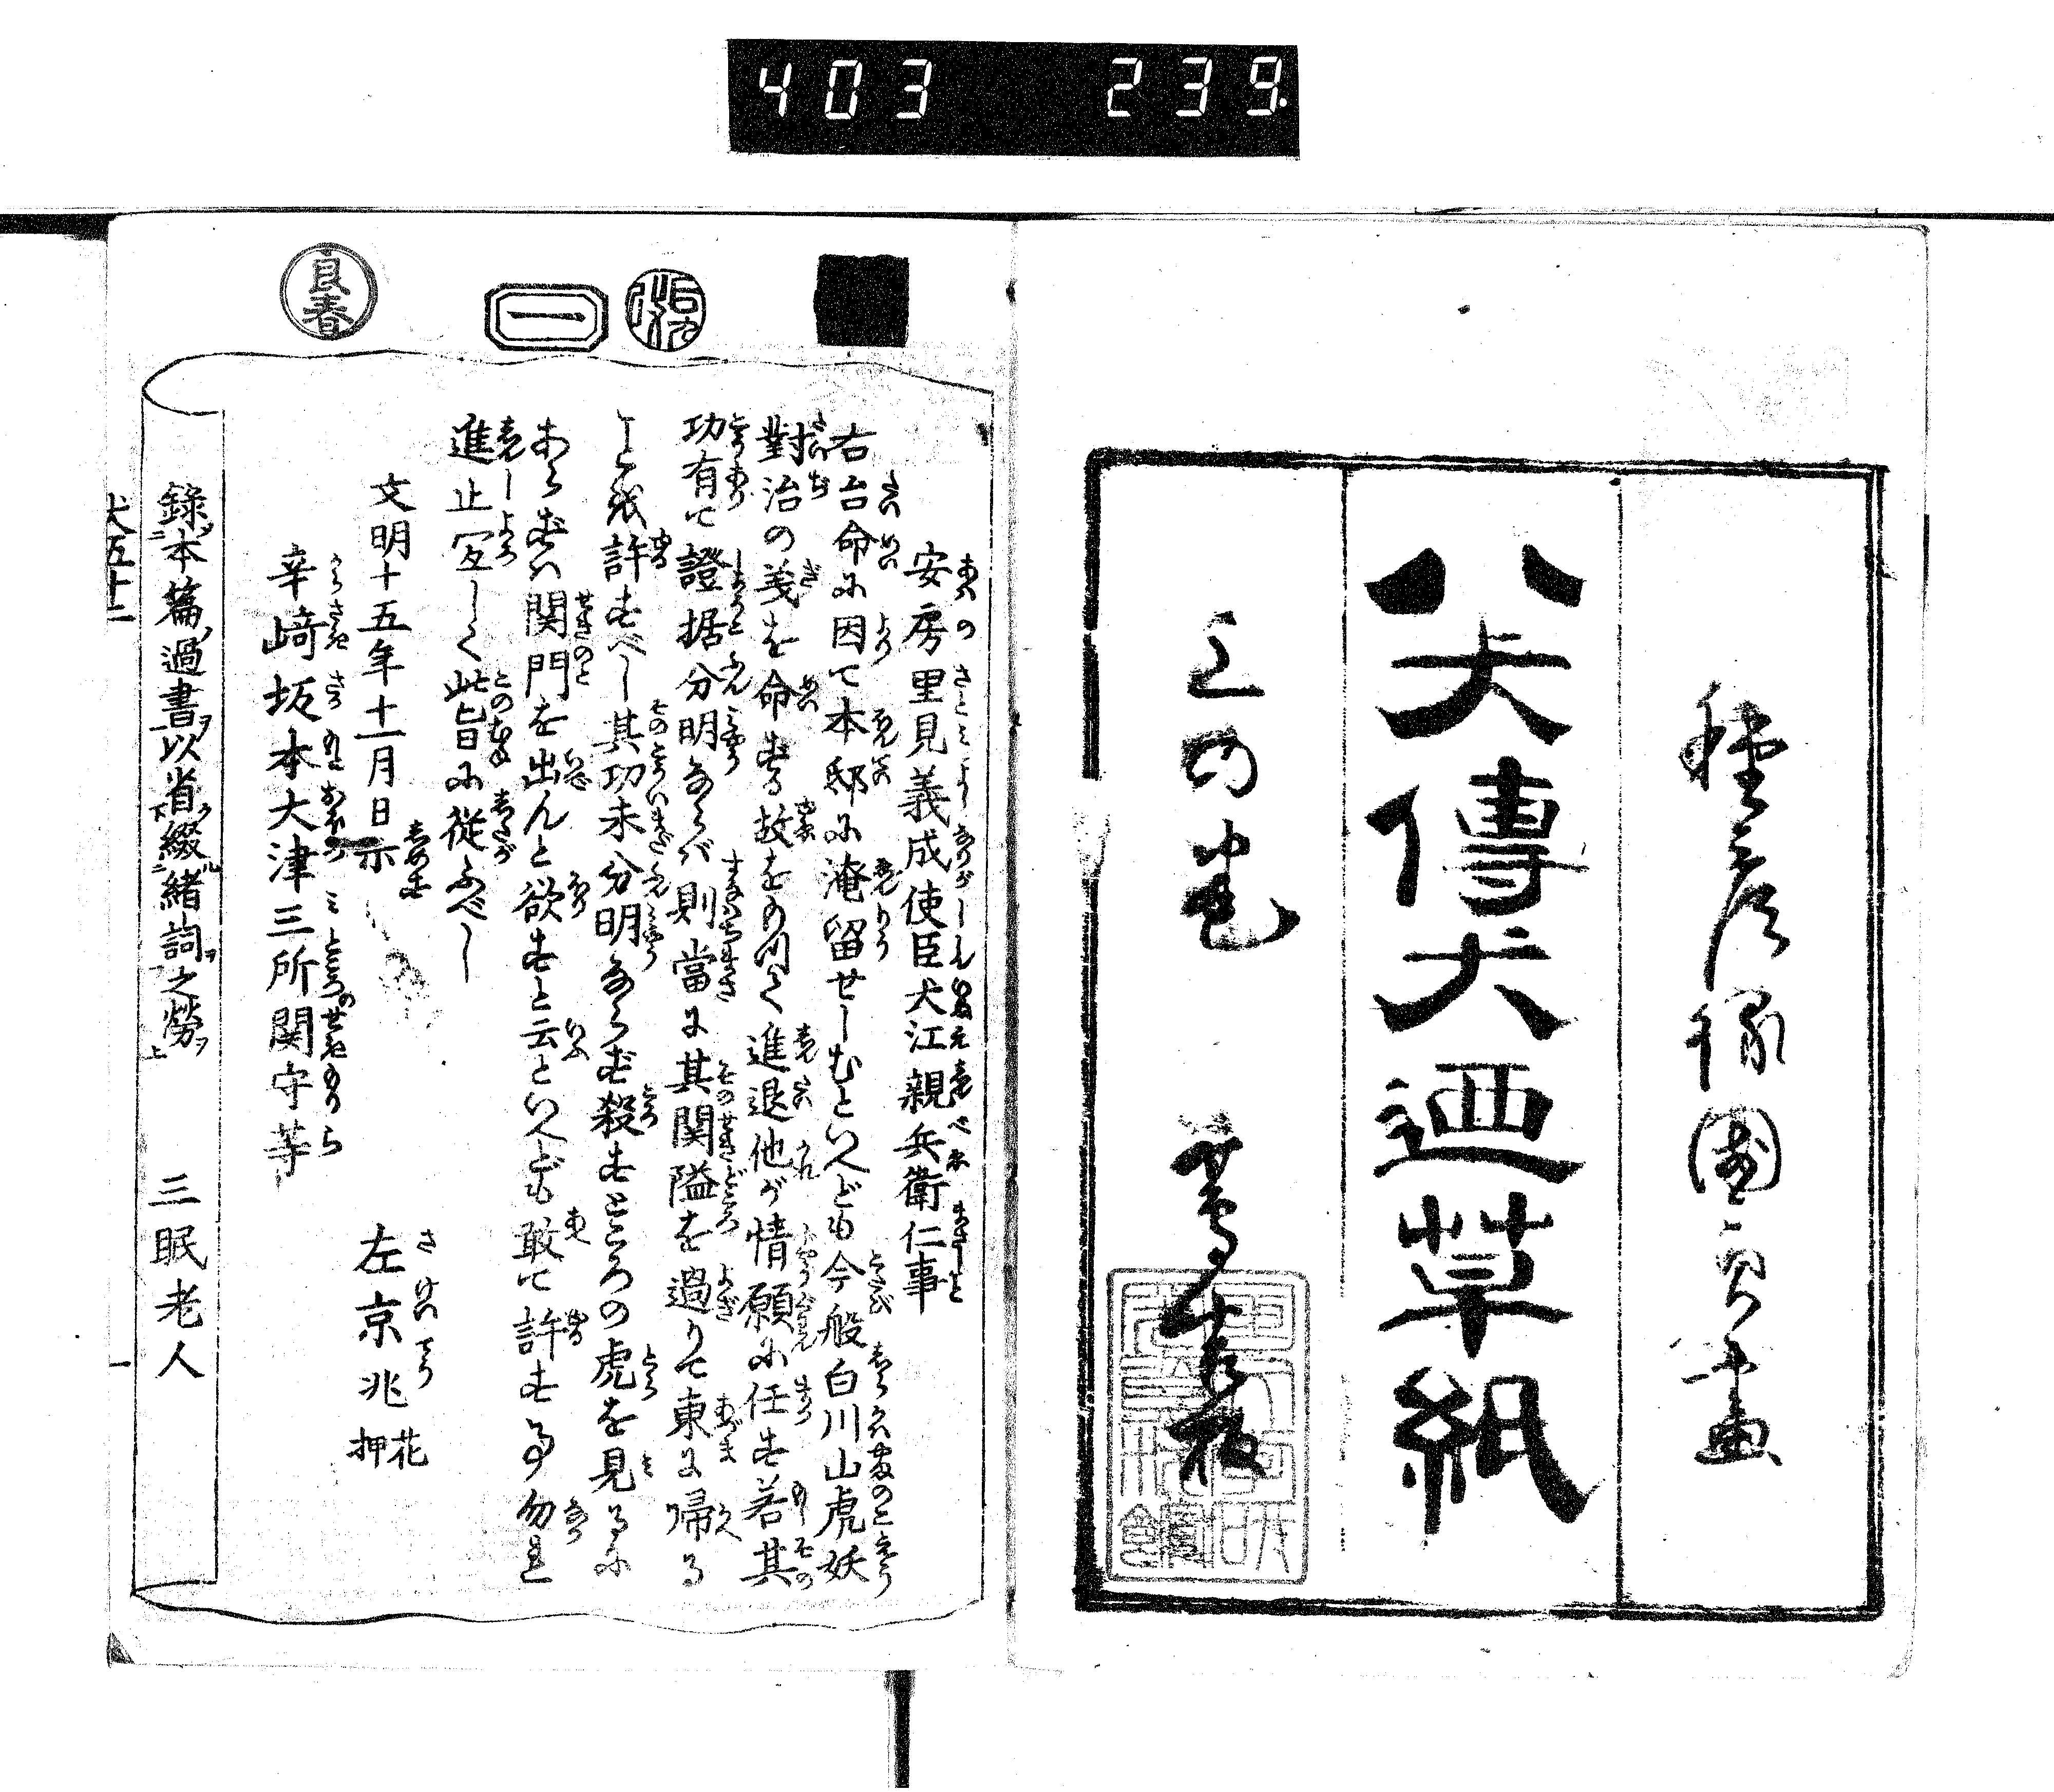 403 239
種彦録 国貞画
八犬傳犬廼草紙
上の巻 蔦吉板
良春
一
安房里見義成使臣犬江親兵衛仁事
右台命に因て本邸に淹留せしむといへども今般白川山虎妖
對治の義を命ずる故をもつて進退他が情願に任す若其
功有て證据分明ならバ則當に其関隘を過りて東に帰る
ことを許すべし其功未分明ならず殺すところの虎を見るに
あらずバ関門を出んと欲すと云といへども敢て許す事勿れ
進止宜しく此旨に従ふべし
文明十五年十一月日示
左京兆 花押
辛崎坂本大津三所関守等
錄本篇過書以省綴緒詞之勞 三眠老人
犬五十二 一